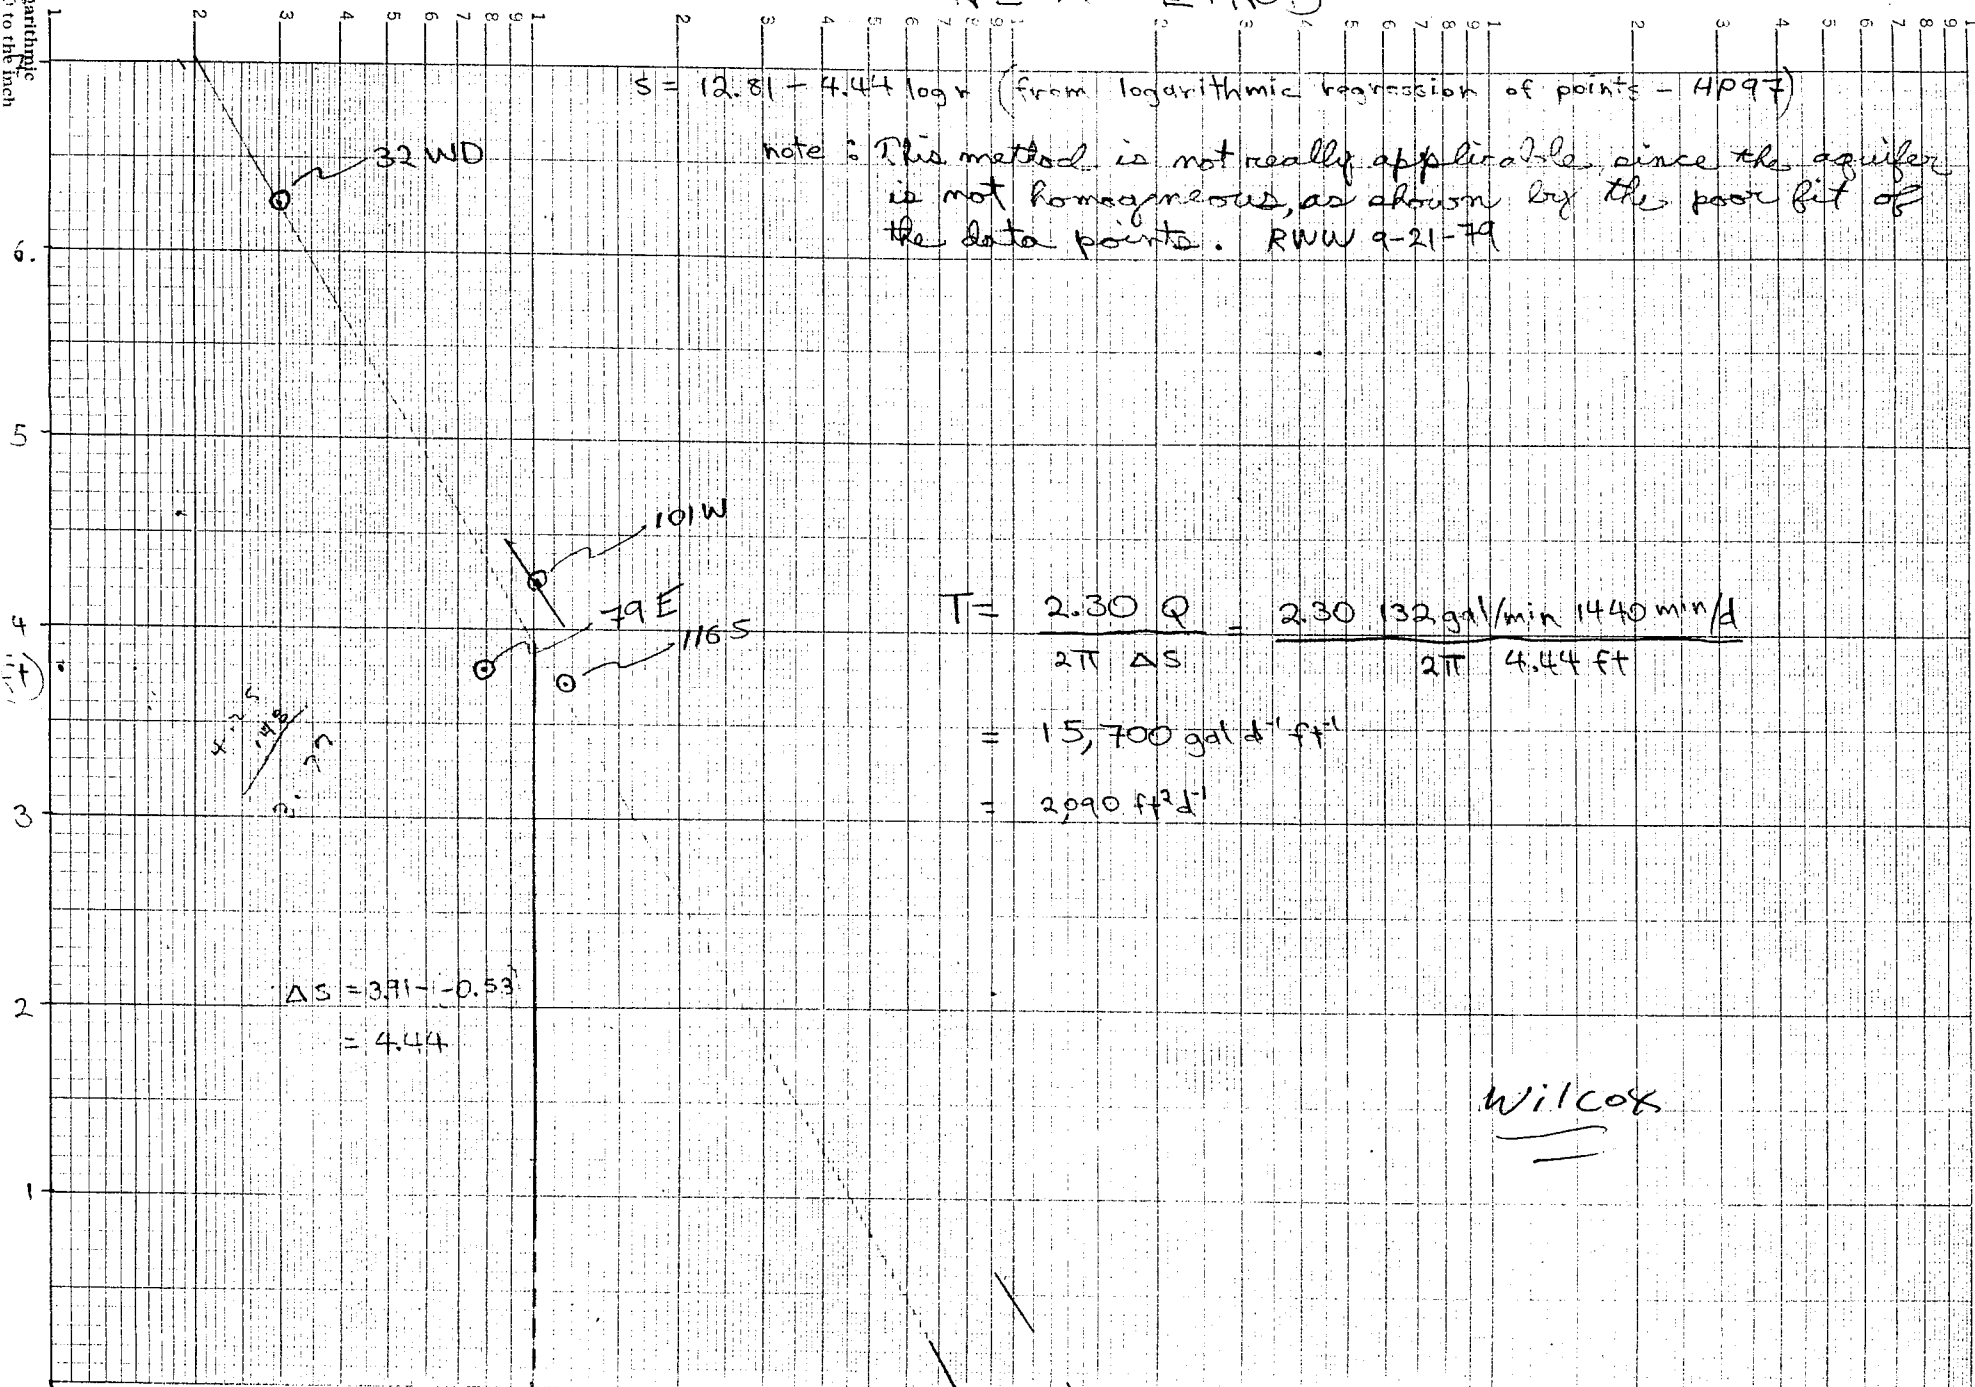 1 2 3 4 5 6 7 8 9 1 2 3 4 5 6 7 8 9 1 2 3 4 5 6 7 8 9 1 2 3 4 5 6 7 8 9 1
to the inch
s = 12.81 - 4.44 log r (from logarithmic regression of points - HP97)
note : This method is not really applicable, since the aquifer
is not homogneous, as shown by the poor fit of
the data points. RWW 9-21-79
32 WD
6.
5
101 W
79 E
116 S
4
T = 2.30 Q / 2π ΔS = 2.30 132 gal/min 1440 min/d / 2π 4.44 ft
= 15,700 gal d⁻¹ ft⁻¹
= 2,090 ft² d⁻¹
3
ΔS = 3.91 - -0.53
= 4.44
2
Wilcox
1